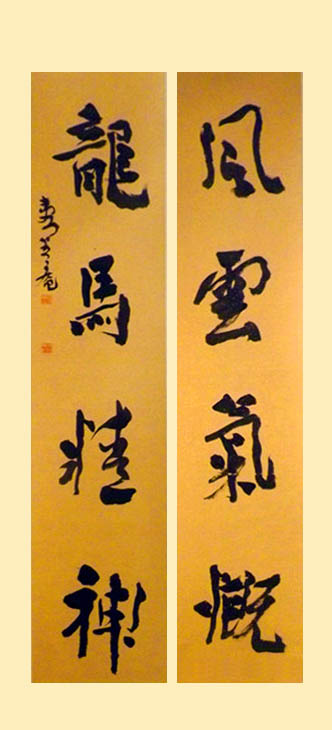 風雲氣概
龍馬精神